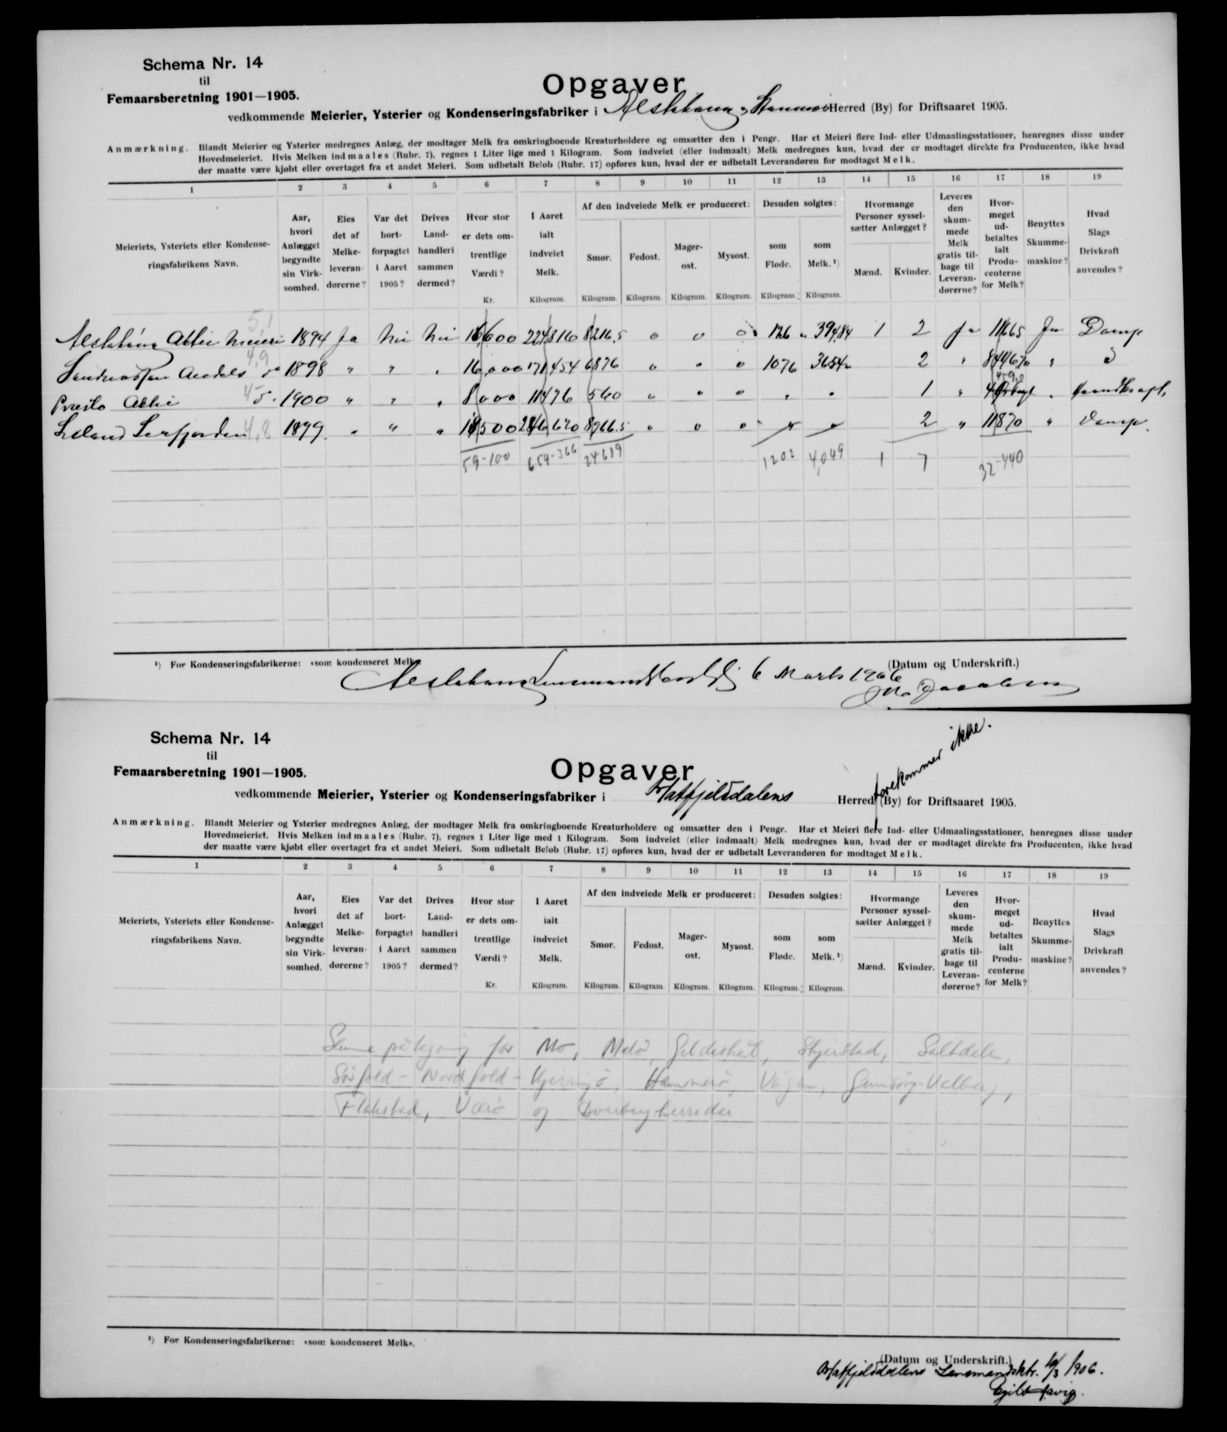 Schema Nr. 14
til
Femaarsberetning 1901—1905.
Opgaver
vedkommende Meierier, Ysterier og Kondenseringsfabriker i Alstahaug Herred (By) for Driftsaaret 1905.
Anmærkning. Blandt Meierier og Ysterier medregnes Anlæg, der modtager Melk fra omkringboende Kreaturholdere og omsætter den i Penge. Har et Meieri flere Ind- eller Udmaalingsstationer, henregnes disse under
Hovedmeieriet. Hvis Melken indmaales (Rubr. 7), regnes 1 Liter lige med 1 Kilogram. Som indveiet (eller indmaalt) Melk medregnes kun, hvad der er modtaget direkte fra Producenten, ikke hvad
der maatte være kjøbt eller overtaget fra et andet Meieri. Som udbetalt Beløb (Rubr. 17) opføres kun, hvad der er udbetalt Leverandøren for modtaget Melk.
1 2 3 4 5 6 7 8 9 10 11 12 13 14 15 16 17 18 19
Meieriets, Ysteriets eller Kondenseringsfabrikens Navn.
Aar, hvori Anlægget begyndte sin Virksomhed.
Eies det af Melkeleverandørerne?
Var det bortforpagtet i Aaret 1905?
Drives Landhandleri sammen dermed?
Hvor stor er dets omtrentlige Værdi? Kr.
I Aaret ialt indveiet Melk. Kilogram.
Af den indveiede Melk er produceret:
Smør. Kilogram.
Fedost. Kilogram.
Magerost. Kilogram.
Mysost. Kilogram.
Desuden solgtes:
som Fløde. Kilogram.
som Melk. ¹) Kilogram.
Hvormange Personer sysselsætter Anlægget?
Mænd. Kvinder.
Leveres den skummede Melk gratis tilbage til Leverandørerne?
Hvormeget udbetaltes ialt Producenterne for Melk?
Benyttes Skummemaskine?
Hvad Slags Drivkraft anvendes?
Meieri 1894 Ja Nei Nei 0 0 0 126 1 2 Ja 11665 Ja Damp
1898 " " 16,000 171454 6876 0 0 0 1076 2 "
1900 " " 8000 11476 540 0 0 0 1 " Haandkraft
1899 " " " 0 0 0 2 " 11870 " Damp.
59-100 654-366 24619 1202 4,049 1 7 32-440
¹) For Kondenseringsfabrikerne: «som kondenseret Melk».
(Datum og Underskrift.)
6 Marts 1906
Schema Nr. 14
til
Femaarsberetning 1901—1905.
forekommer ikke.
Opgaver
vedkommende Meierier, Ysterier og Kondenseringsfabriker i Hatfjelddalens Herred (By) for Driftsaaret 1905.
Anmærkning. Blandt Meierier og Ysterier medregnes Anlæg, der modtager Melk fra omkringboende Kreaturholdere og omsætter den i Penge. Har et Meieri flere Ind- eller Udmaalingsstationer, henregnes disse under
Hovedmeieriet. Hvis Melken indmaales (Rubr. 7), regnes 1 Liter lige med 1 Kilogram. Som indveiet (eller indmaalt) Melk medregnes kun, hvad der er modtaget direkte fra Producenten, ikke hvad
der maatte være kjøbt eller overtaget fra et andet Meieri. Som udbetalt Beløb (Rubr. 17) opføres kun, hvad der er udbetalt Leverandøren for modtaget Melk.
1 2 3 4 5 6 7 8 9 10 11 12 13 14 15 16 17 18 19
Meieriets, Ysteriets eller Kondenseringsfabrikens Navn.
Aar, hvori Anlægget begyndte sin Virksomhed.
Eies det af Melkeleverandørerne?
Var det bortforpagtet i Aaret 1905?
Drives Landhandleri sammen dermed?
Hvor stor er dets omtrentlige Værdi? Kr.
I Aaret ialt indveiet Melk. Kilogram.
Af den indveiede Melk er produceret:
Smør. Kilogram.
Fedost. Kilogram.
Magerost. Kilogram.
Mysost. Kilogram.
Desuden solgtes:
som Fløde. Kilogram.
som Melk. ¹) Kilogram.
Hvormange Personer sysselsætter Anlægget?
Mænd. Kvinder.
Leveres den skummede Melk gratis tilbage til Leverandørerne?
Hvormeget udbetaltes ialt Producenterne for Melk?
Benyttes Skummemaskine?
Hvad Slags Drivkraft anvendes?
Samme påtegning for Mo, Melø, Gildeskål, Skjerstad, Saltdalen,
Sørfold - Nordfold - Kjerringø, Hammerø, Vågan, Gimsøy-Valberg,
Flakstad, Værø og Dverberg herreder.
¹) For Kondenseringsfabrikerne: «som kondenseret Melk».
(Datum og Underskrift.)
Hatfjelddalens Lensmandsktr. 1906.